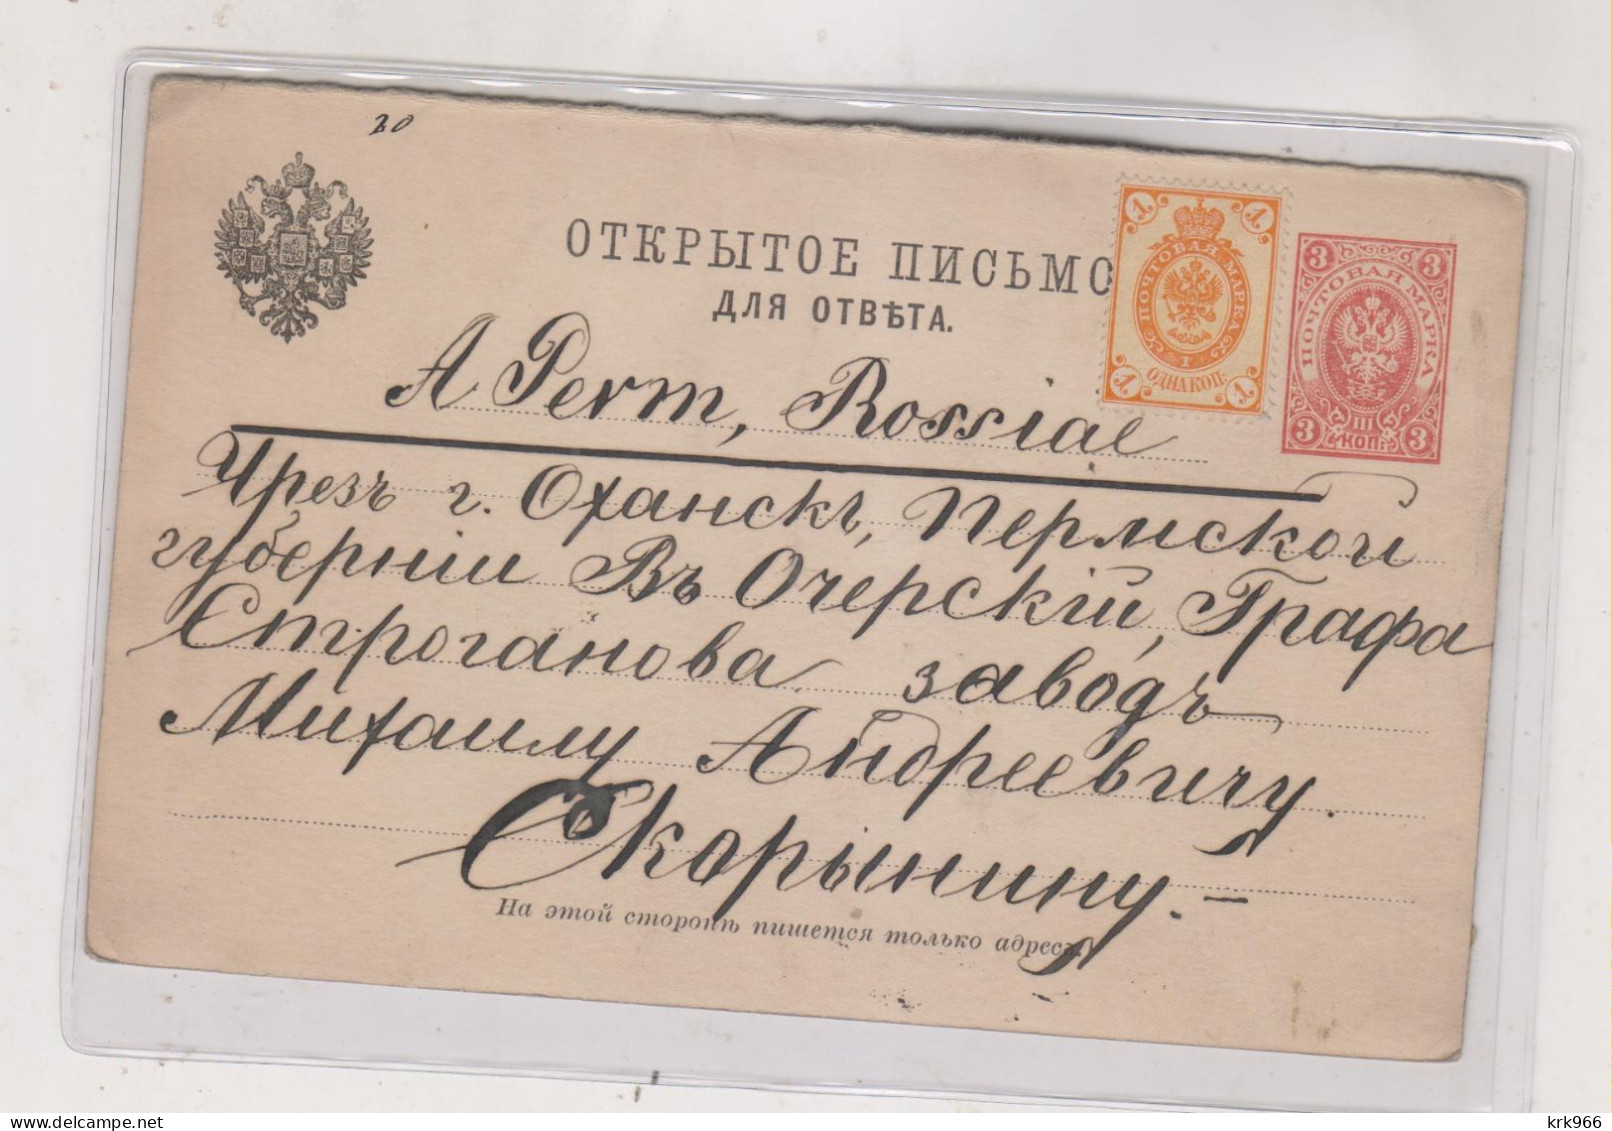 20
ОТКРЫТОЕ ПИСЬМО
ДЛЯ ОТВѢТА.
1 1
ПОЧТОВАЯ МАРКА
I
ОДНА КОП.
1 1
3 3
ПОЧТОВАЯ МАРКА
III
КОП.
3 3
A Perm, Rossiae
Чрезъ г. Оханскъ, Пермской
губернiи Въ Очерскiй, Графа
Строганова заводъ
Михаилу Андреевичу.
Скорынину.-
На этой сторонѣ пишется только адресъ.
krk966